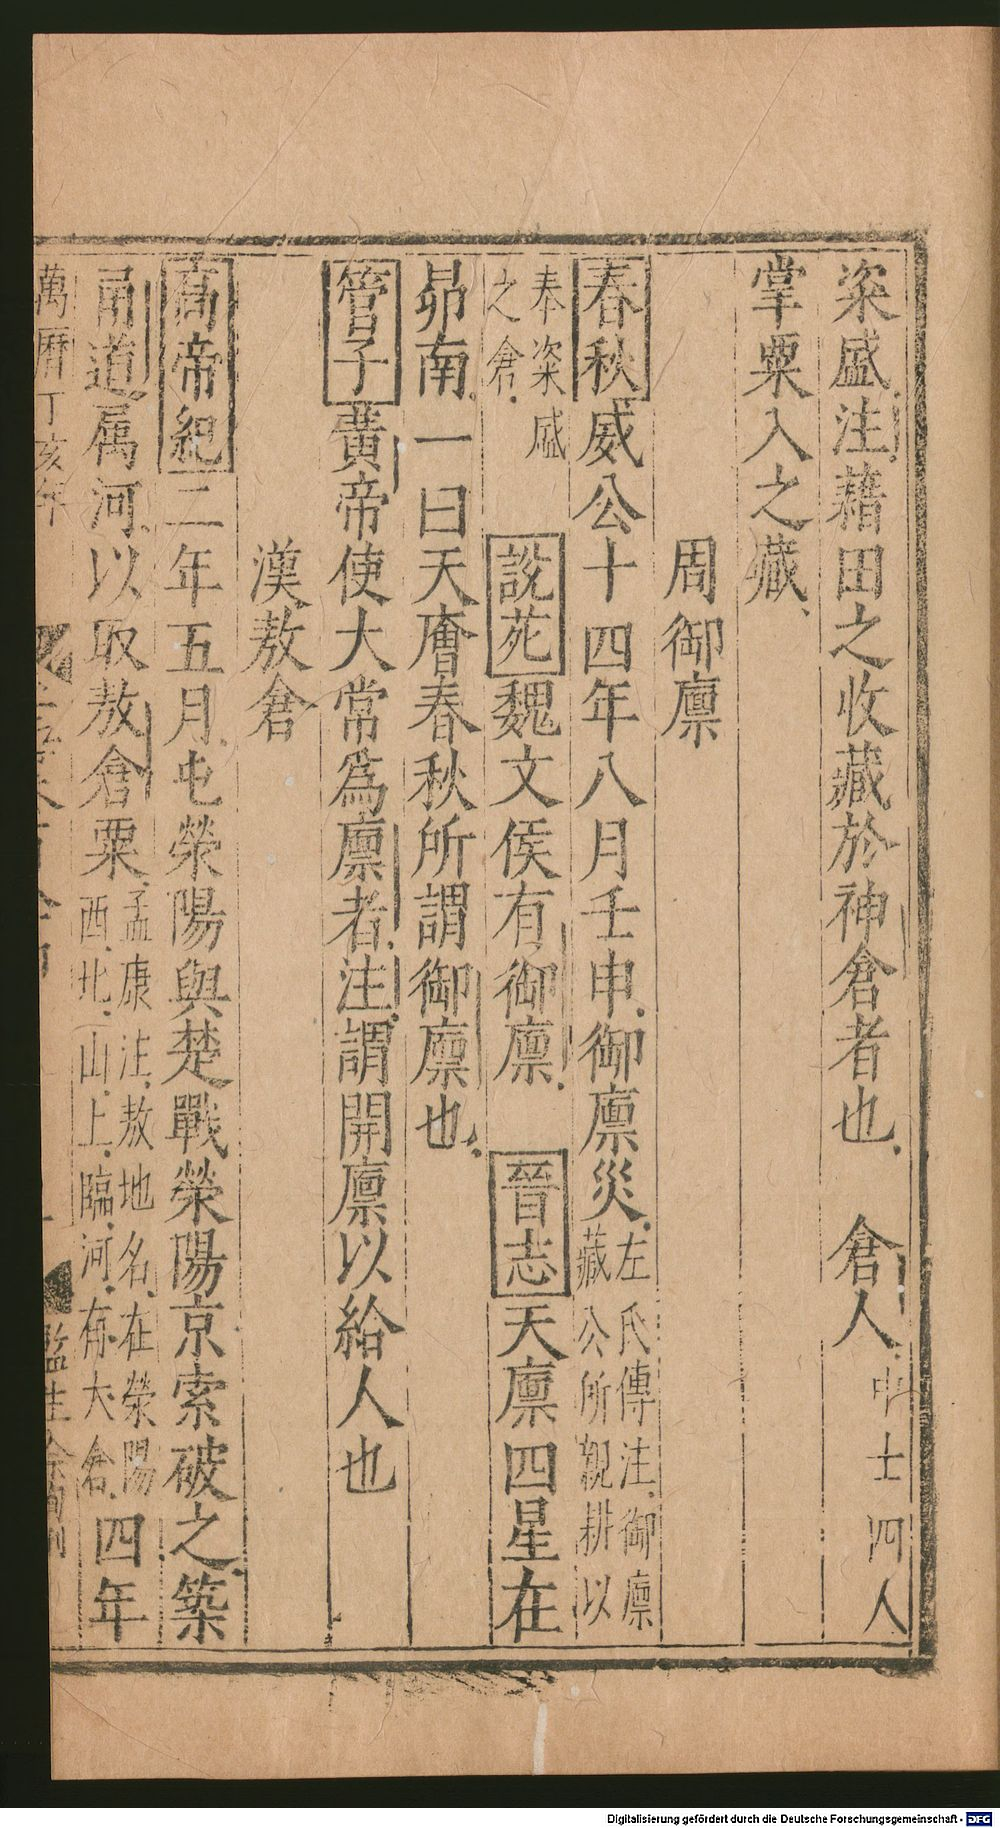 粢盛注藉田之收藏於神倉者也 倉人中士四人
掌粟入之藏
周御廪
春秋威公十四年八月壬申御廪災左氏傳注御廪
藏公所親耕以
奉粢盛
之倉 說苑魏文侯有御廪 晉志天廪四星在
昴南一曰天廥春秋所謂御廪也
管子黃帝使大常爲廪者注謂開廪以給人也
漢敖倉
高帝紀二年五月屯榮陽與楚戰榮陽京索破之築
甬道属河以取敖倉粟孟康注敖地名在榮陽
西北山上臨河有大倉四年
萬曆丁亥年
監生
Digitalisierung gefördert durch die Deutsche Forschungsgemeinschaft - DFG